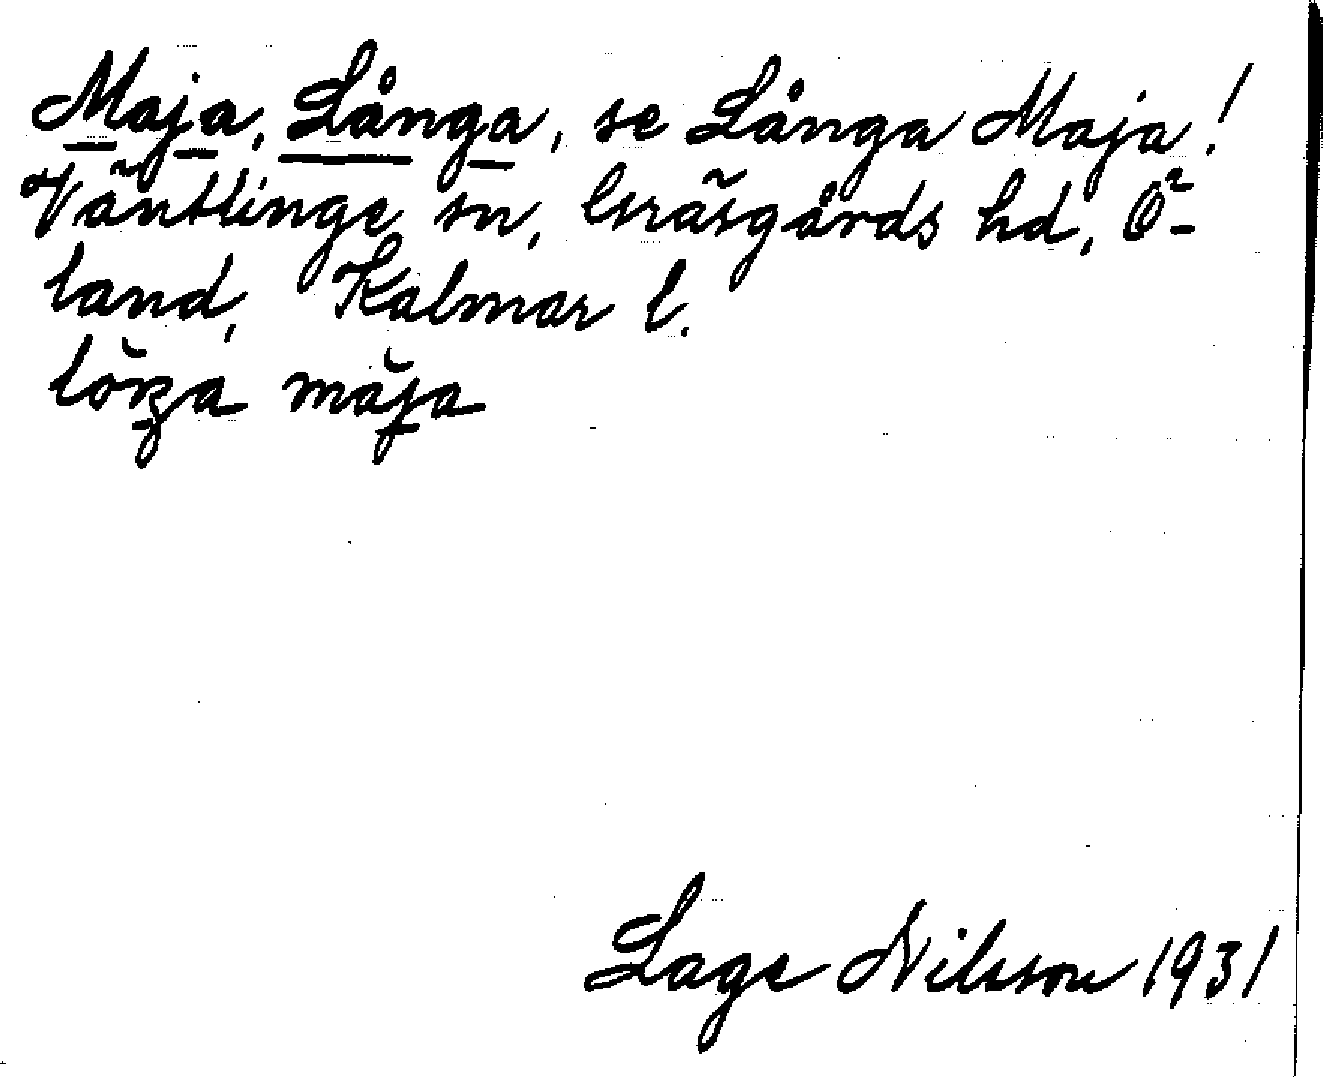 Maja, Långa, se Långa Maja!
Ventlinge sn, Gräsgårds hd, Ö-
land, Kalmar l.
Lage Nilsson 1931